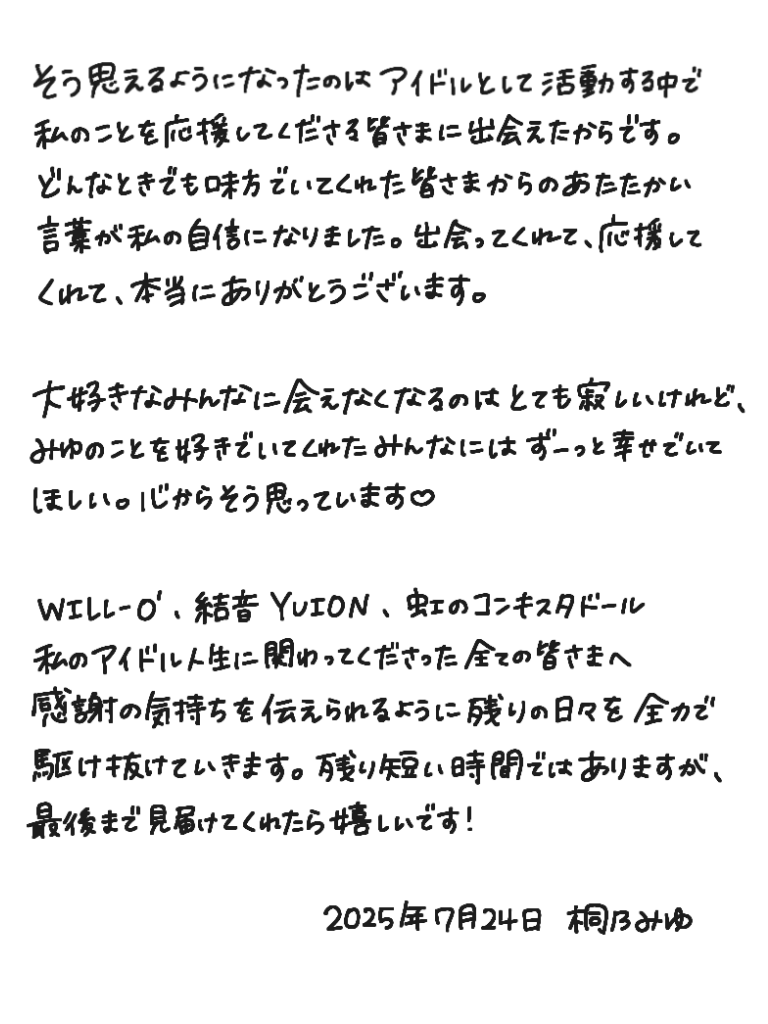 そう思えるようになったのは アイドルとして 活動する中で
私のことを応援してくださる皆さまに出会えたからです。
どんなときでも味方でいてくれた皆さまからのあたたかい
言葉が私の自信になりました。出会ってくれて、応援して
くれて、本当にありがとうございます。
大好きなみんなに会えなくなるのはとても寂しいけれど、
みゆのことを好きでいてくれたみんなにはずーっと幸せでいて
ほしい。心からそう思っています♡
WILL-O'、結音 YUION、虹のコンキスタドール
私のアイドル人生に関わってくださった全ての皆さまへ
感謝の気持ちを伝えられるように残りの日々を全力で
駆け抜けていきます。残り短い時間ではありますが、
最後まで見届けてくれたら嬉しいです!
2025年7月24日 桐乃みゆ